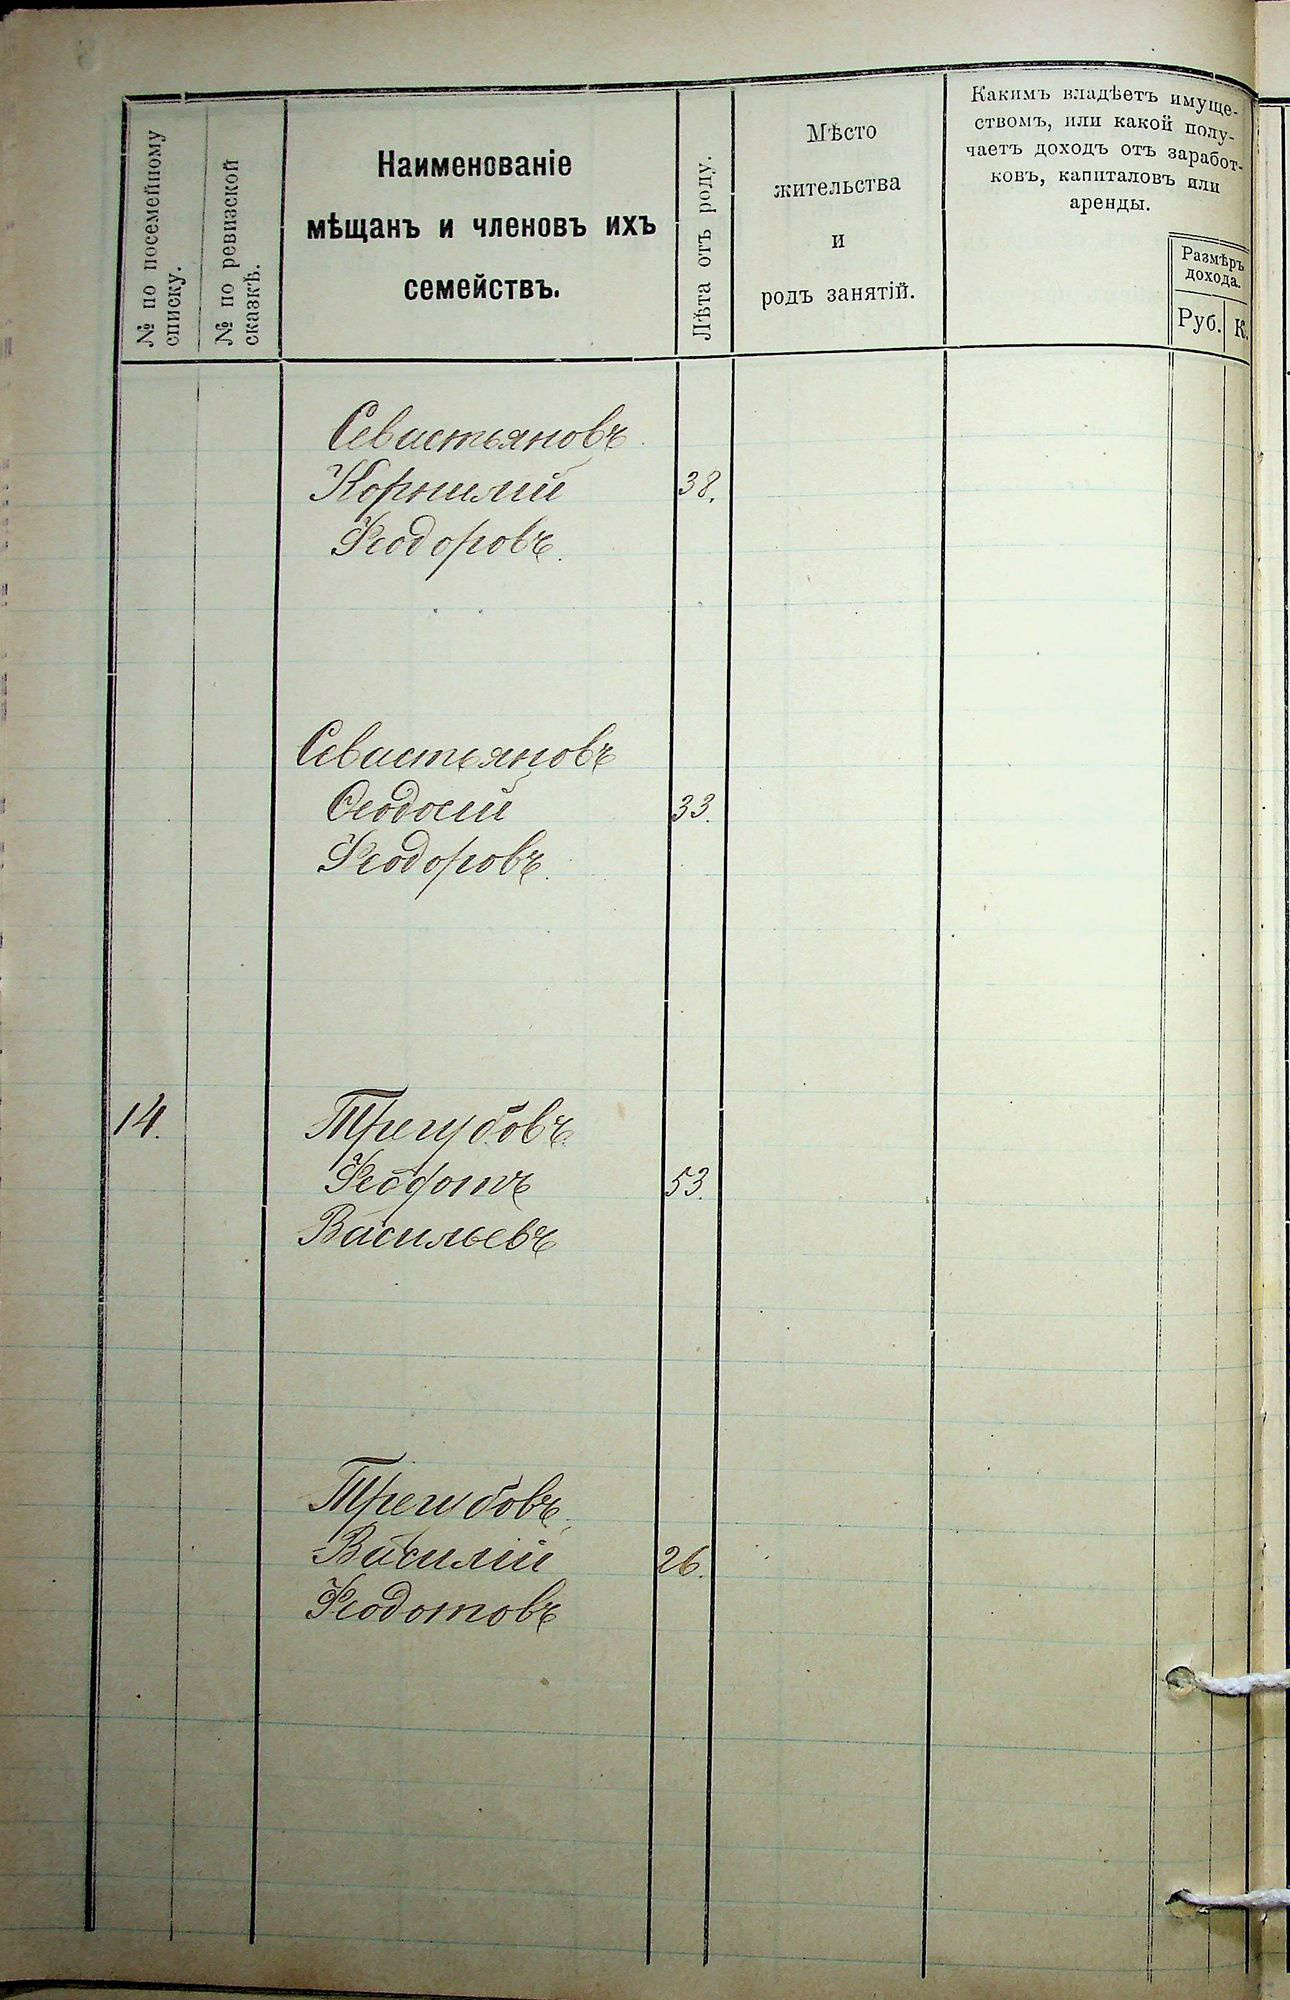 № по посемейному
списку.
№ по ревизской
сказкѣ.
Наименованіе
мѣщанъ и членовъ ихъ
семействъ.
Лѣта отъ роду.
Мѣсто
жительства
и
родъ занятій.
Какимъ владѣетъ имуще-
ствомъ, или какой полу-
чаетъ доходъ отъ заработ-
ковъ, капиталовъ или
аренды.
Размѣръ
дохода.
Руб.
К.
Севастьяновъ
Корнилій 38.
Ѳеодоровъ.
Севастьяновъ
Ѳеодосій 33.
Ѳеодоровъ.
14. Трегубовъ
Ѳеодотъ 53.
Васильевъ
Трегубовъ
Василій 26.
Ѳеодотовъ